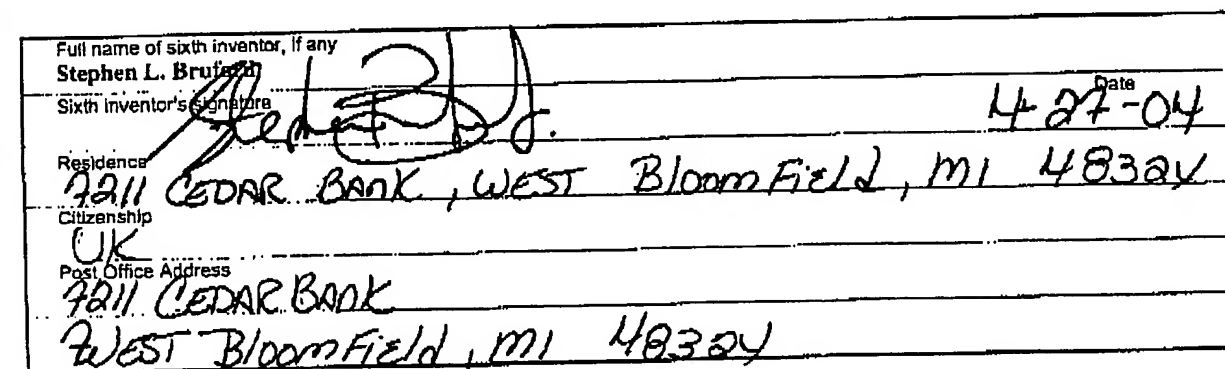 Full name of sixth inventor, if any
Stephen L. Bruford
Sixth inventor's signature
Date
4-27-04
Residence
7211 CEDAR BANK, WEST BloomField, MI 48324
Citizenship
UK
Post Office Address
7211 CEDAR BANK
WEST BloomField, MI 48324